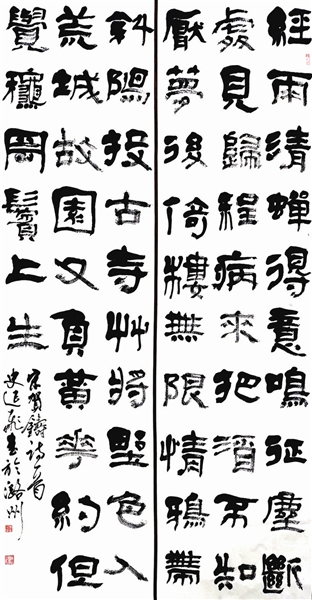 經雨清蟬得意鳴征塵斷
處見歸程病來把酒不知
厭夢後倚樓無限情鴉帶
斜陽投古寺艸將野色入
荒城故園又負黃華約但
覺穐風鬢上生
宋賀鑄詩一首
史飛書於潞州